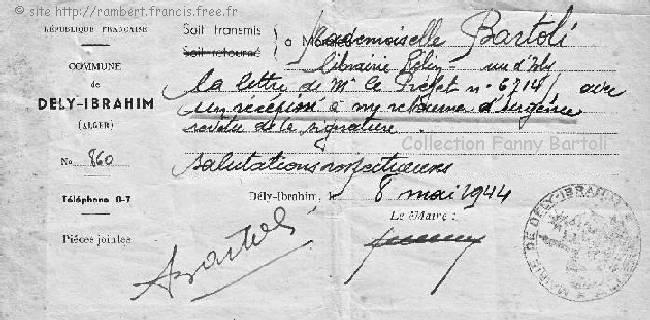 © site http://rambert.francis.free.fr
RÉPUBLIQUE FRANÇAISE
COMMUNE
de
DÉLY-IBRAHIM
(ALGER)
No 860
Téléphone 0-7
Pièces jointes
Soit transmis
Soit retourné
à Mademoiselle Bartoli
librairie rue d'Isly
la lettre de Mr le Préfet no 6714 avec
un réception à me retourné d'urgence
revêtu de la signature.
Collection Fanny Bartoli
Salutations
Dély-Ibrahim, le 8 mai 1944
Le Maire :
Bartoli
MAIRIE DE DÉLY-IBRAHIM